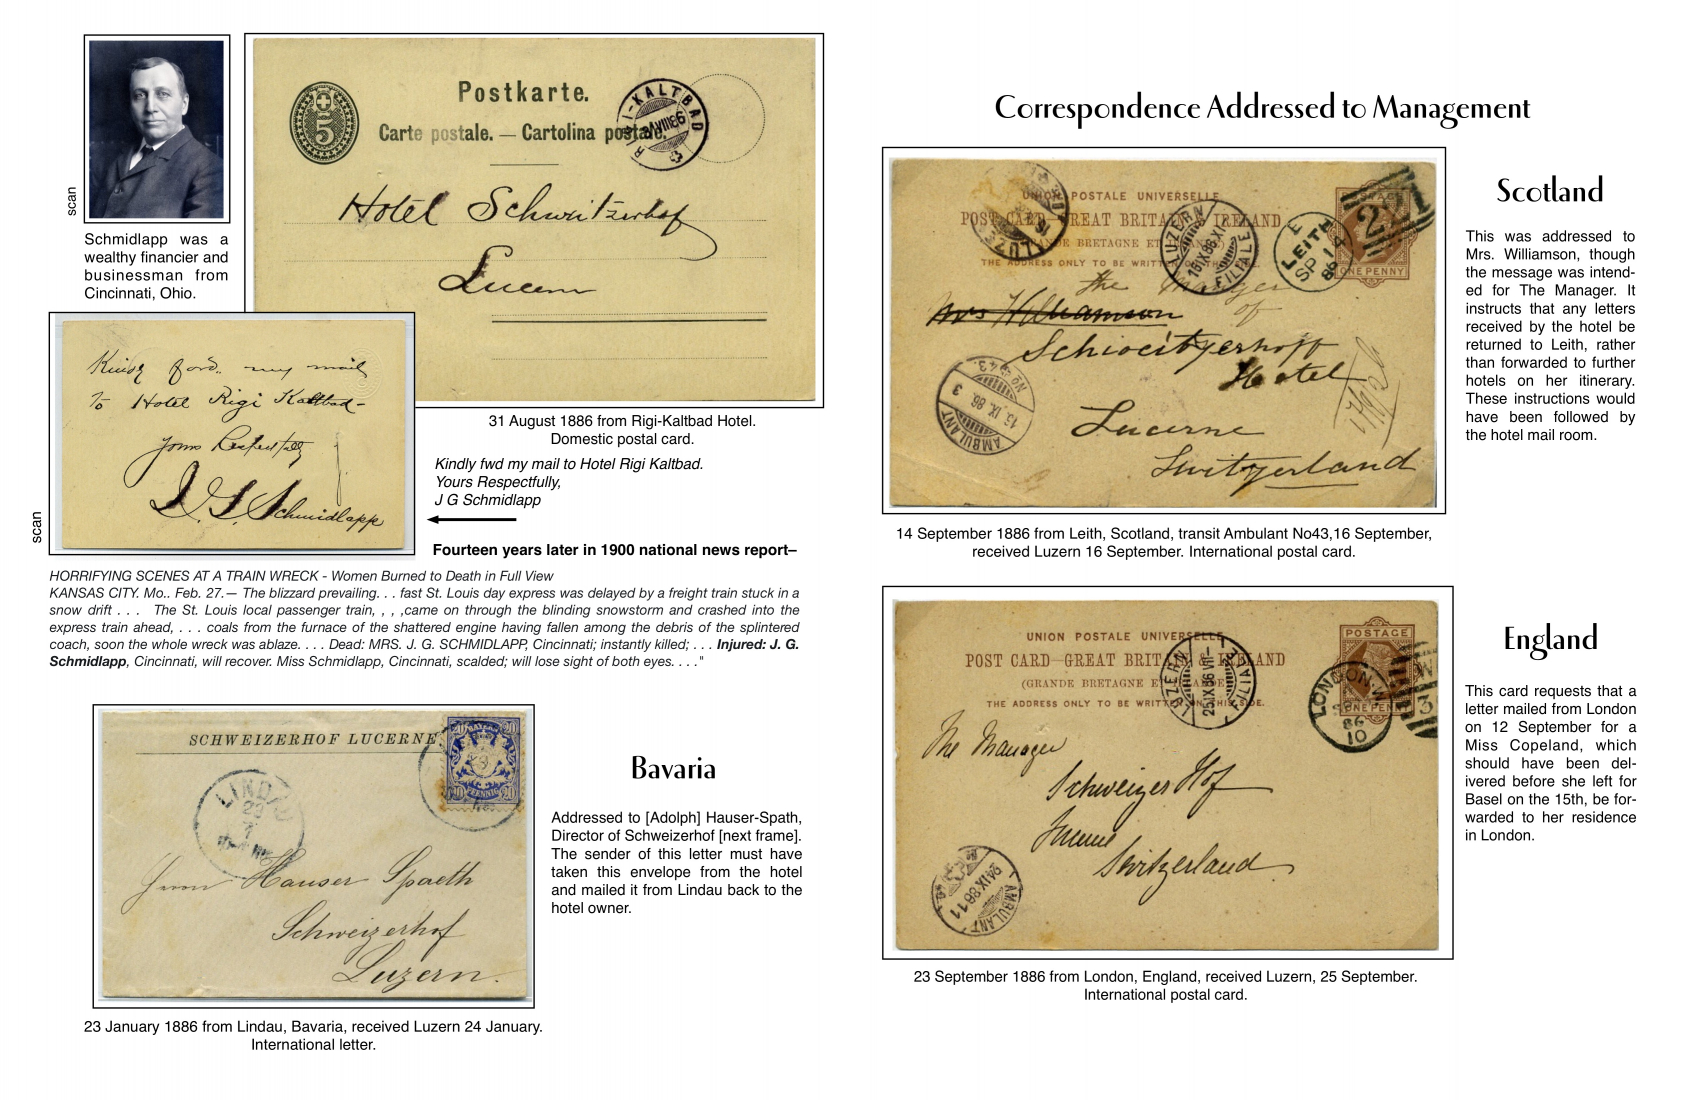 scan
Schmidlapp was a
wealthy financier and
businessman from
Cincinnati, Ohio.
Postkarte.
Carte postale. — Cartolina postale.
5
RIGI-KALTBAD
Hotel Schweitzerhof
Lucern
31 August 1886 from Rigi-Kaltbad Hotel.
Domestic postal card.
scan
Kindly ford. my mail
To Hotel Rigi Kaltbad-
Yours Respectfully
J. G. Schmidlapp
Kindly fwd my mail to Hotel Rigi Kaltbad.
Yours Respectfully,
J G Schmidlapp
Fourteen years later in 1900 national news report–
HORRIFYING SCENES AT A TRAIN WRECK - Women Burned to Death in Full View
KANSAS CITY. Mo.. Feb. 27.— The blizzard prevailing. . . fast St. Louis day express was delayed by a freight train stuck in a
snow drift . . . The St. Louis local passenger train, , , ,came on through the blinding snowstorm and crashed into the
express train ahead, . . . coals from the furnace of the shattered engine having fallen among the debris of the splintered
coach, soon the whole wreck was ablaze. . . . Dead: MRS. J. G. SCHMIDLAPP, Cincinnati; instantly killed; . . . Injured: J. G.
Schmidlapp, Cincinnati, will recover. Miss Schmidlapp, Cincinnati, scalded; will lose sight of both eyes. . . ."
SCHWEIZERHOF LUCERNE
BAYERN
20 20
PFENNIG
20 20
LINDAU
23
Herrn Hauser Spaeth
Schweizerhof
Luzern.
23 January 1886 from Lindau, Bavaria, received Luzern 24 January.
International letter.
Bavaria
Addressed to [Adolph] Hauser-Spath,
Director of Schweizerhof [next frame].
The sender of this letter must have
taken this envelope from the hotel
and mailed it from Lindau back to the
hotel owner.
Correspondence Addressed to Management
UNION POSTALE UNIVERSELLE
POST CARD—GREAT BRITAIN & IRELAND
(GRANDE BRETAGNE ET IRLANDE)
THE ADDRESS ONLY TO BE WRITTEN ON THIS SIDE.
POSTAGE
ONE PENNY
LUZERN
LUZERN
FILIALE
LEITH
SP 14
86
the Manager
of
Mrs Williamson
Schweitzerhoff
Hotel
Lucerne
Switzerland
AMBULANT
No. 43
16. IX. 86. 3
14 September 1886 from Leith, Scotland, transit Ambulant No43,16 September,
received Luzern 16 September. International postal card.
Scotland
This was addressed to
Mrs. Williamson, though
the message was intend-
ed for The Manager. It
instructs that any letters
received by the hotel be
returned to Leith, rather
than forwarded to further
hotels on her itinerary.
These instructions would
have been followed by
the hotel mail room.
UNION POSTALE UNIVERSELLE
POST CARD—GREAT BRITAIN & IRELAND
(GRANDE BRETAGNE ET IRLANDE)
THE ADDRESS ONLY TO BE WRITTEN ON THIS SIDE.
POSTAGE
ONE PENNY
LUZERN
25 IX 86 VII–
FILIALE
LONDON·W
86
10
W
3
The Manager
Schweizer Hof
Lucerne
Switzerland
AMBULANT
24 IX 86 11
23 September 1886 from London, England, received Luzern, 25 September.
International postal card.
England
This card requests that a
letter mailed from London
on 12 September for a
Miss Copeland, which
should have been del-
ivered before she left for
Basel on the 15th, be for-
warded to her residence
in London.